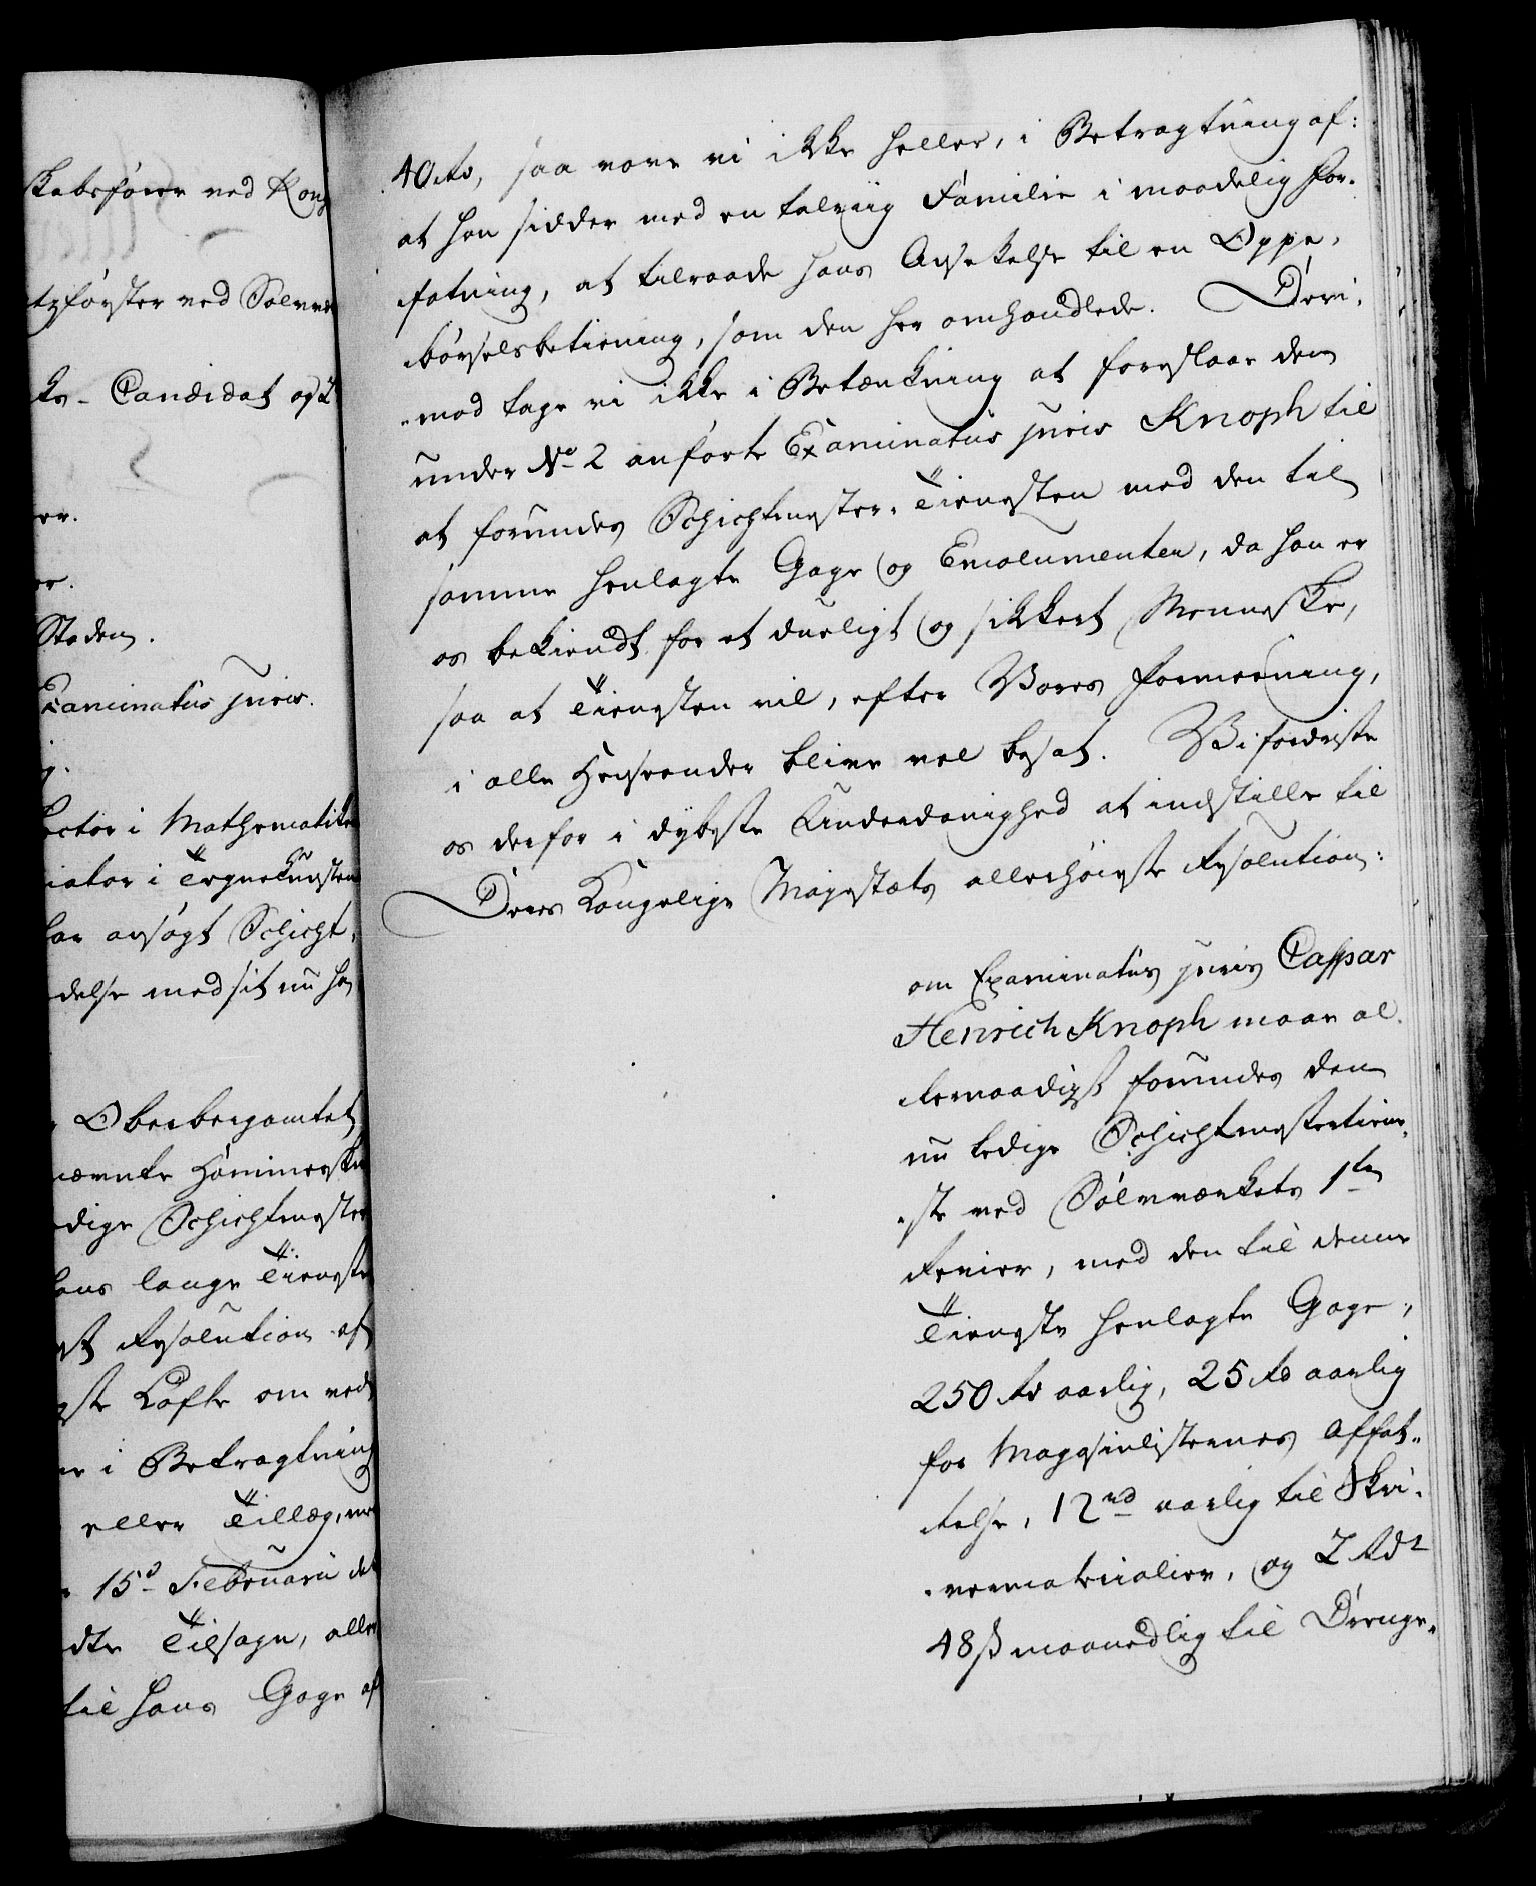 skabsfører ved Kong
tzförster ved Sølvv
Candidat og
er.
er.
Steden.
Examinatus juris.
g.
Lector i Mathematiken
iator i Tegnekunsten
har ansøgt Schicht,
delse med sit nu ha
Oberbergamtet
nævnte Hammerske
dige Schichtmester
hans lange Tieneste
st Resolution af
gste Løfte om ved
er i Betragtning
eller Tillæg, nr
15d Februarii det
dte Tilsagn, aller
til hans Gage af
40 rd, saa vove vi ikke heller, i Betragtning af:
at han sidder med en talriig Familie i maadelig For-
fatning, at tilraade hans Ansættelse til en Oppe-
børselsbetiening, som den her omhandlede. Deri-
mod tage vi ikke i Betænkning at foreslaae den
under No 2 anførte Examinatus juris Knoph til
at forundes Schichtmester-Tienesten med den til
samme henlagte Gage og Emolumenter, da han er
os bekiendt for et dueligt og sikkert Menneske,
saa at Tienesten vil, efter Vores Formeening,
i alle Henseender blive vel besat. Vi fordriste
os derfor i dybeste Underdanighed at indstille til
Deres Kongelige Majestæts allerhøieste Resolution:
om Examinatus juris Caspar
Henrich Knoph maae al-
lernaadigst forundes den
nu ledige Schichtmestertiene-
ste ved Sølvværkets 1te
Revier, med den til denne
Tieneste henlagte Gage,
250 rd aarlig, 25 rd aarlig
for Magasinlisternes Affat-
telse, 12 rd aarlig til Skri-
vematerialier, og 2 Rdr
48 ß maanedlig til Drenge-